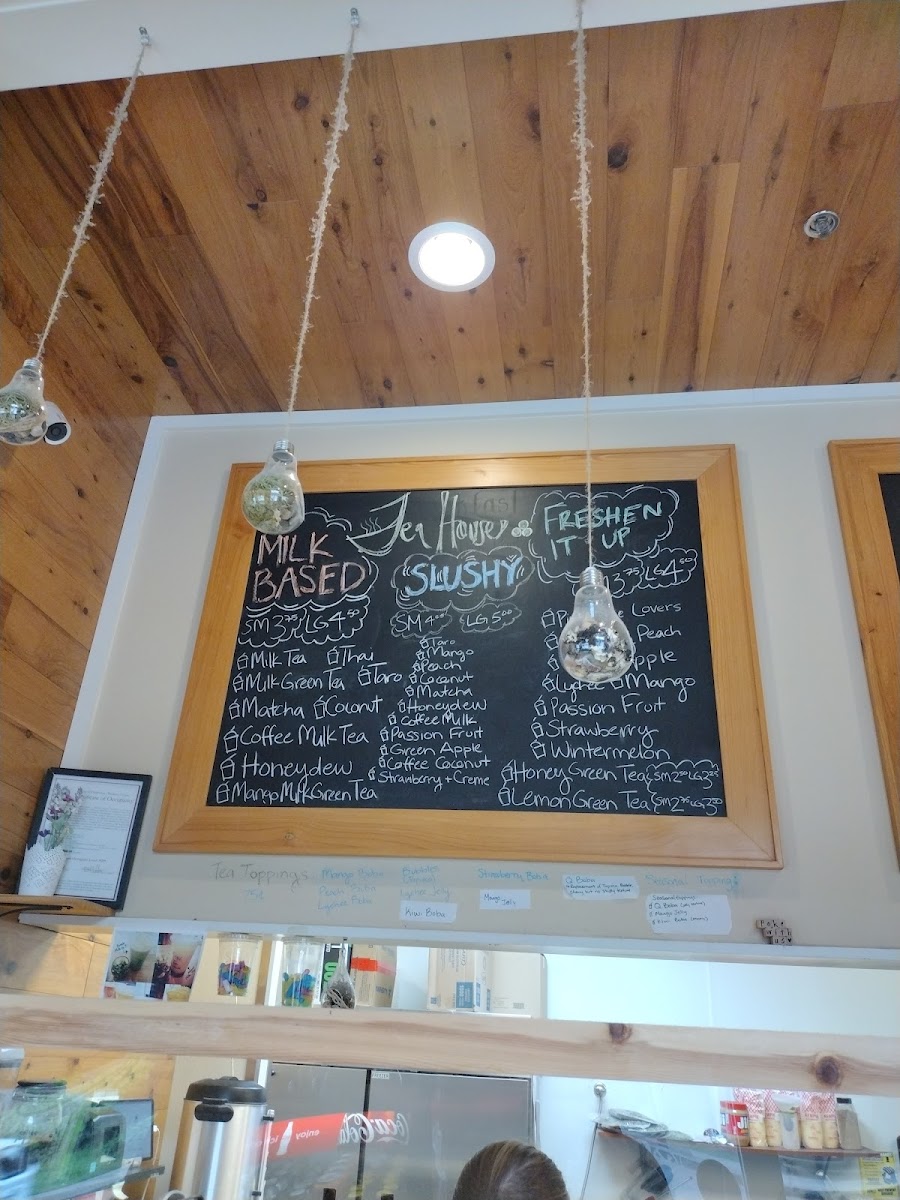 Tea House
MILK
BASED
SM 3.75 LG 4.50
Milk Tea Thai
Milk Green Tea Taro
Matcha Coconut
Coffee Milk Tea
Honeydew
Mango Milk Green Tea
SLUSHY
SM 4.00 LG 5.00
Taro
Mango
Peach
Coconut
Matcha
Honeydew
Coffee Milk
Passion Fruit
Green Apple
Coffee Coconut
Strawberry + Creme
FRESHEN
IT UP
3.75 LG 4.50
Lovers
Peach
Lychee Mango
Passion Fruit
Strawberry
Wintermelon
Honey Green Tea
Lemon Green Tea
Tea Toppings
75¢
Mango Boba
Peach Boba
Lychee Boba
Lychee Jelly
Kiwi Boba
Strawberry Boba
Mango
Jelly
Q Boba
Seasonal Toppings
Mango Jelly
enjoy
Coca-Cola